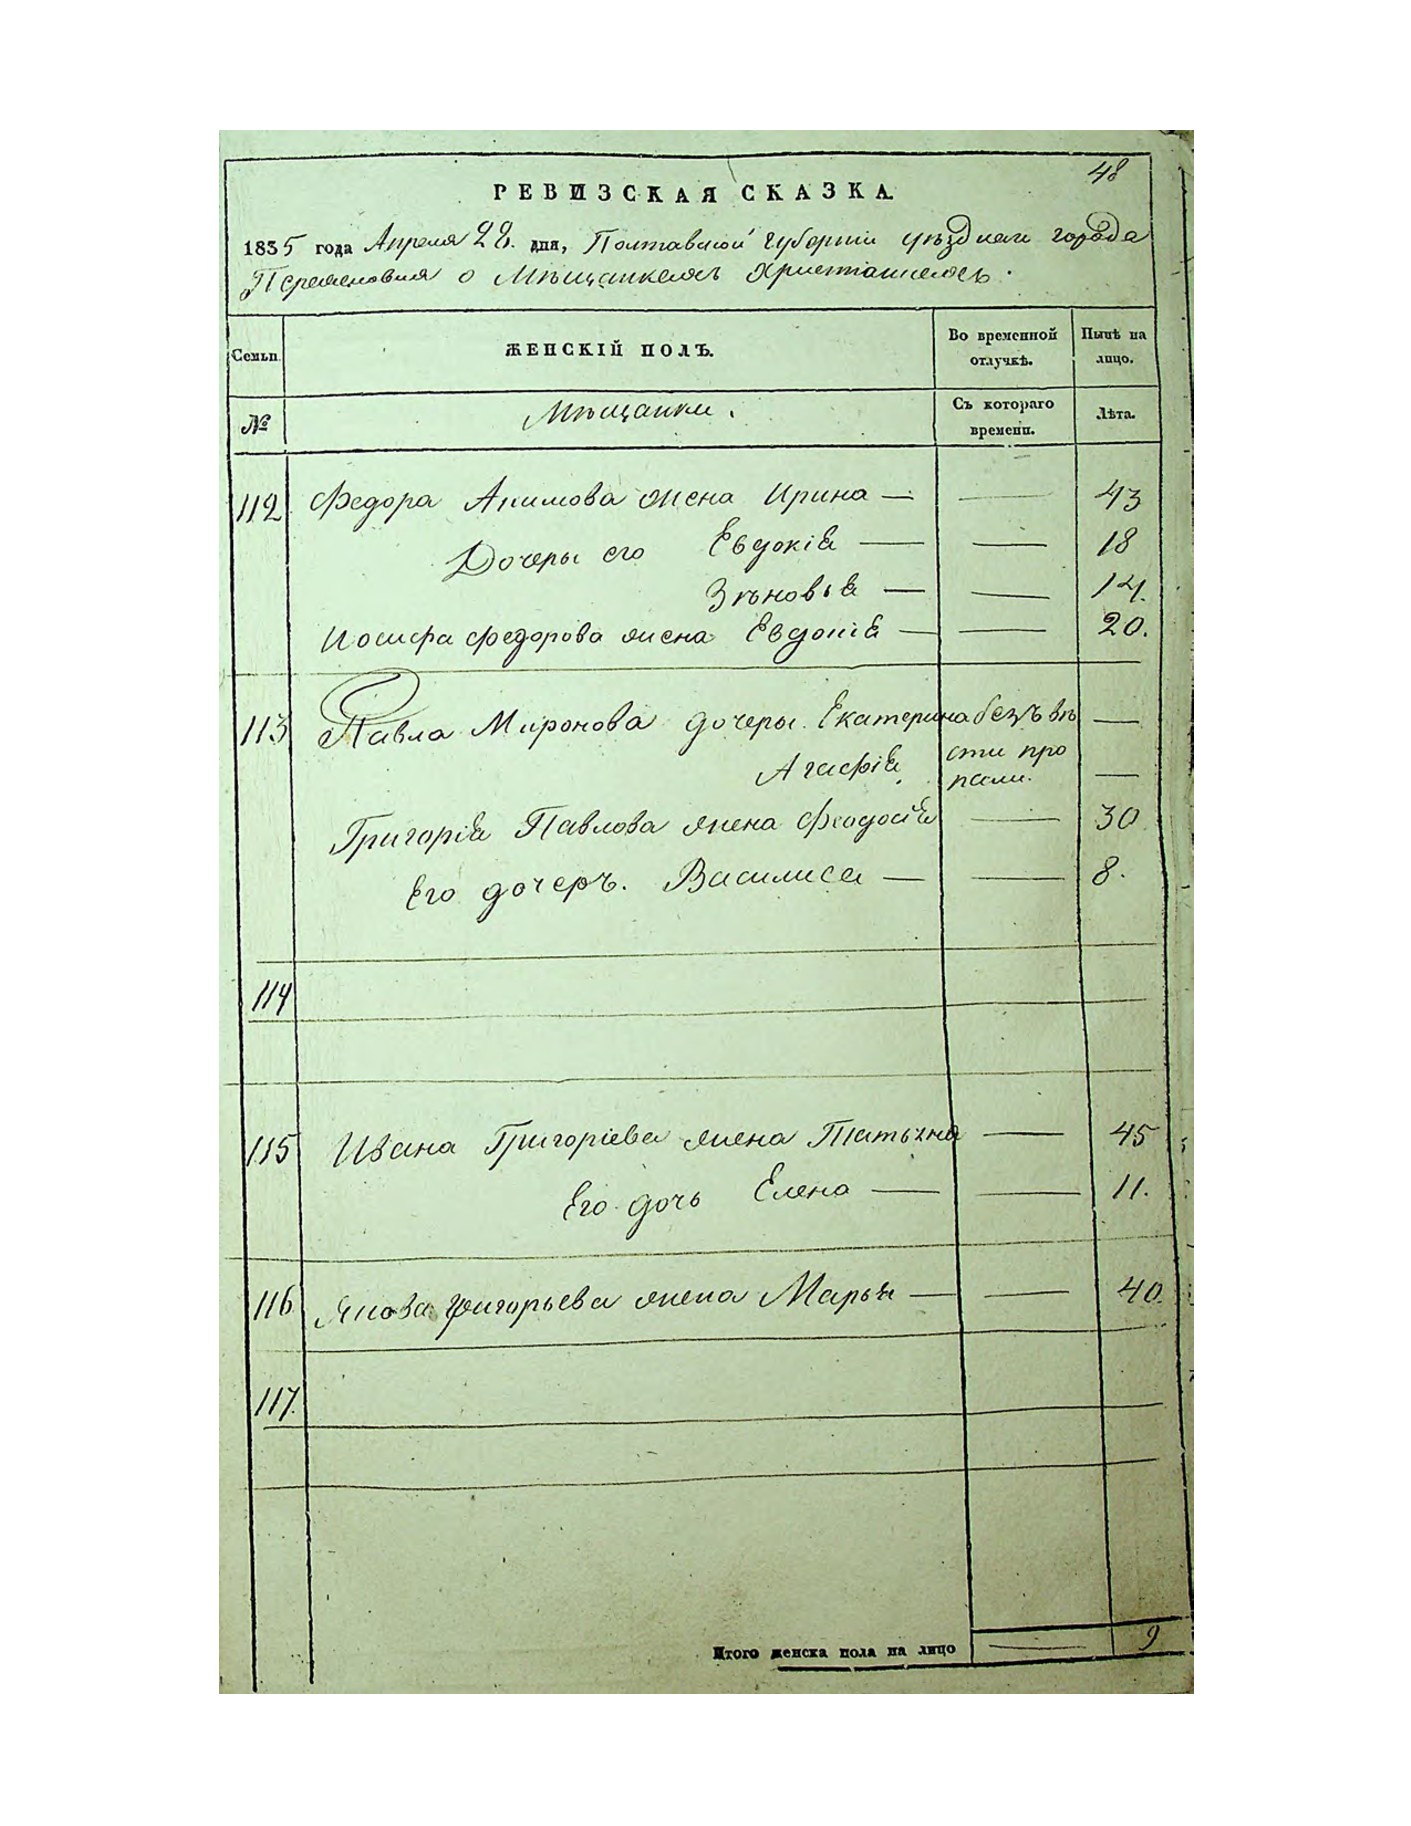 48
РЕВИЗСКАЯ СКАЗКА.
1835 года Апреля 28. дня, Полтавской губернии уѣзднаго города
о Мѣщанкахъ Христианкахъ.
Семьи
ЖЕНСКІЙ ПОЛЪ.
Во временной отлучкѣ.
Нынѣ на лицо.
№
Мѣщанки.
Съ котораго времени.
Лѣта.
112 Федора Акимова жена Ирина — — 43
Дочеры его Евдокія — — 18
Зѣновья — — 14.
Иосифа Федорова жена Евдокія — — 20.
113 Павла Миронова дочеры. Екатерина безъ вѣ —
Агафія. сти про
пали. —
Григорія Павлова жена Феодосія — 30
Его дочеръ. Василиса — — 8.
114
115 Ивана Григоріева жена Татьяна — 45
Его дочь Елена — — 11.
116 Якова Григорьева жена Марья — — 40.
117.
Итого женска пола на лицо — 9